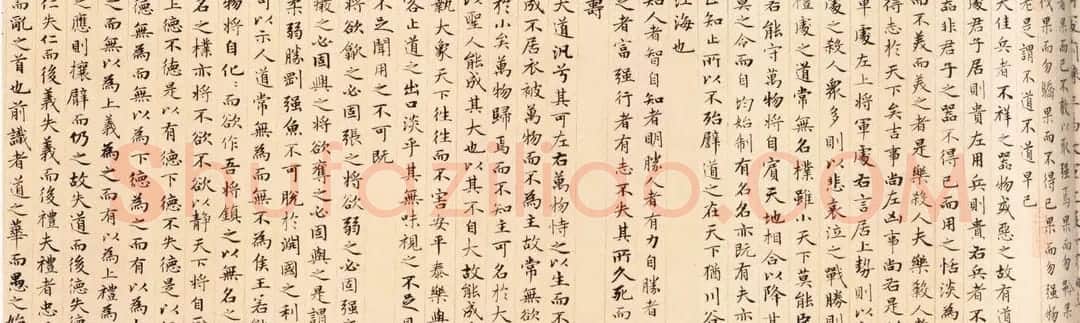 者果而已不敢以取强焉果而勿
果而勿驕果而不得已果而勿强物
老是謂不道不道早已
夫佳兵者不祥之器物或惡之故有道
處君子居則貴左用兵則貴右兵者不
器非君子之器不得已而用之恬淡為
而不美而美之者是樂殺人夫樂殺人
得志於天下矣吉事尚左凶事尚右是
軍處左上將軍處右言居上勢則以
處之殺人衆多則以悲哀泣之戰勝則
禮處之道常無名樸雖小天下莫能臣
若能守萬物將自賓天地相合以降甘
莫之令而自均始制有名名亦既有夫亦
知止所以不殆譬道之在天下猶川谷
江海也
知人者智自知者明勝人者有力自勝者
之者富强行者有志不失其所久死而
壽
大道汎兮其可左右萬物恃之以生而不
成不居衣被萬物而不為主故常無欲
於小矣萬物歸焉而不知主可名於大
以聖人能成其大也以其不自大故能成
執大象天下往往而不害安平泰樂與
客止道之出口淡乎其無味視之不足
不足聞用之不可既
將欲歙之必固張之將欲弱之必固强
之必固興之將欲奪之必固與之是謂
柔弱勝剛强魚不可脫於淵國之利
可以示人道常無為而無不為侯王若
物將自化而欲作吾將鎮之以無名之
名之樸亦將不欲不欲以靜天下將自
上德不德是以有德下德不失德是以
德無為而無以為下德為之而有以為上
之而無以為上義為之而有以為上禮為
之應則攘臂而仍之故失道而後德失
仁失仁而後義失義而後禮夫禮者忠
而亂之首也前識者道之華而愚之始
Shufaziliao.COM